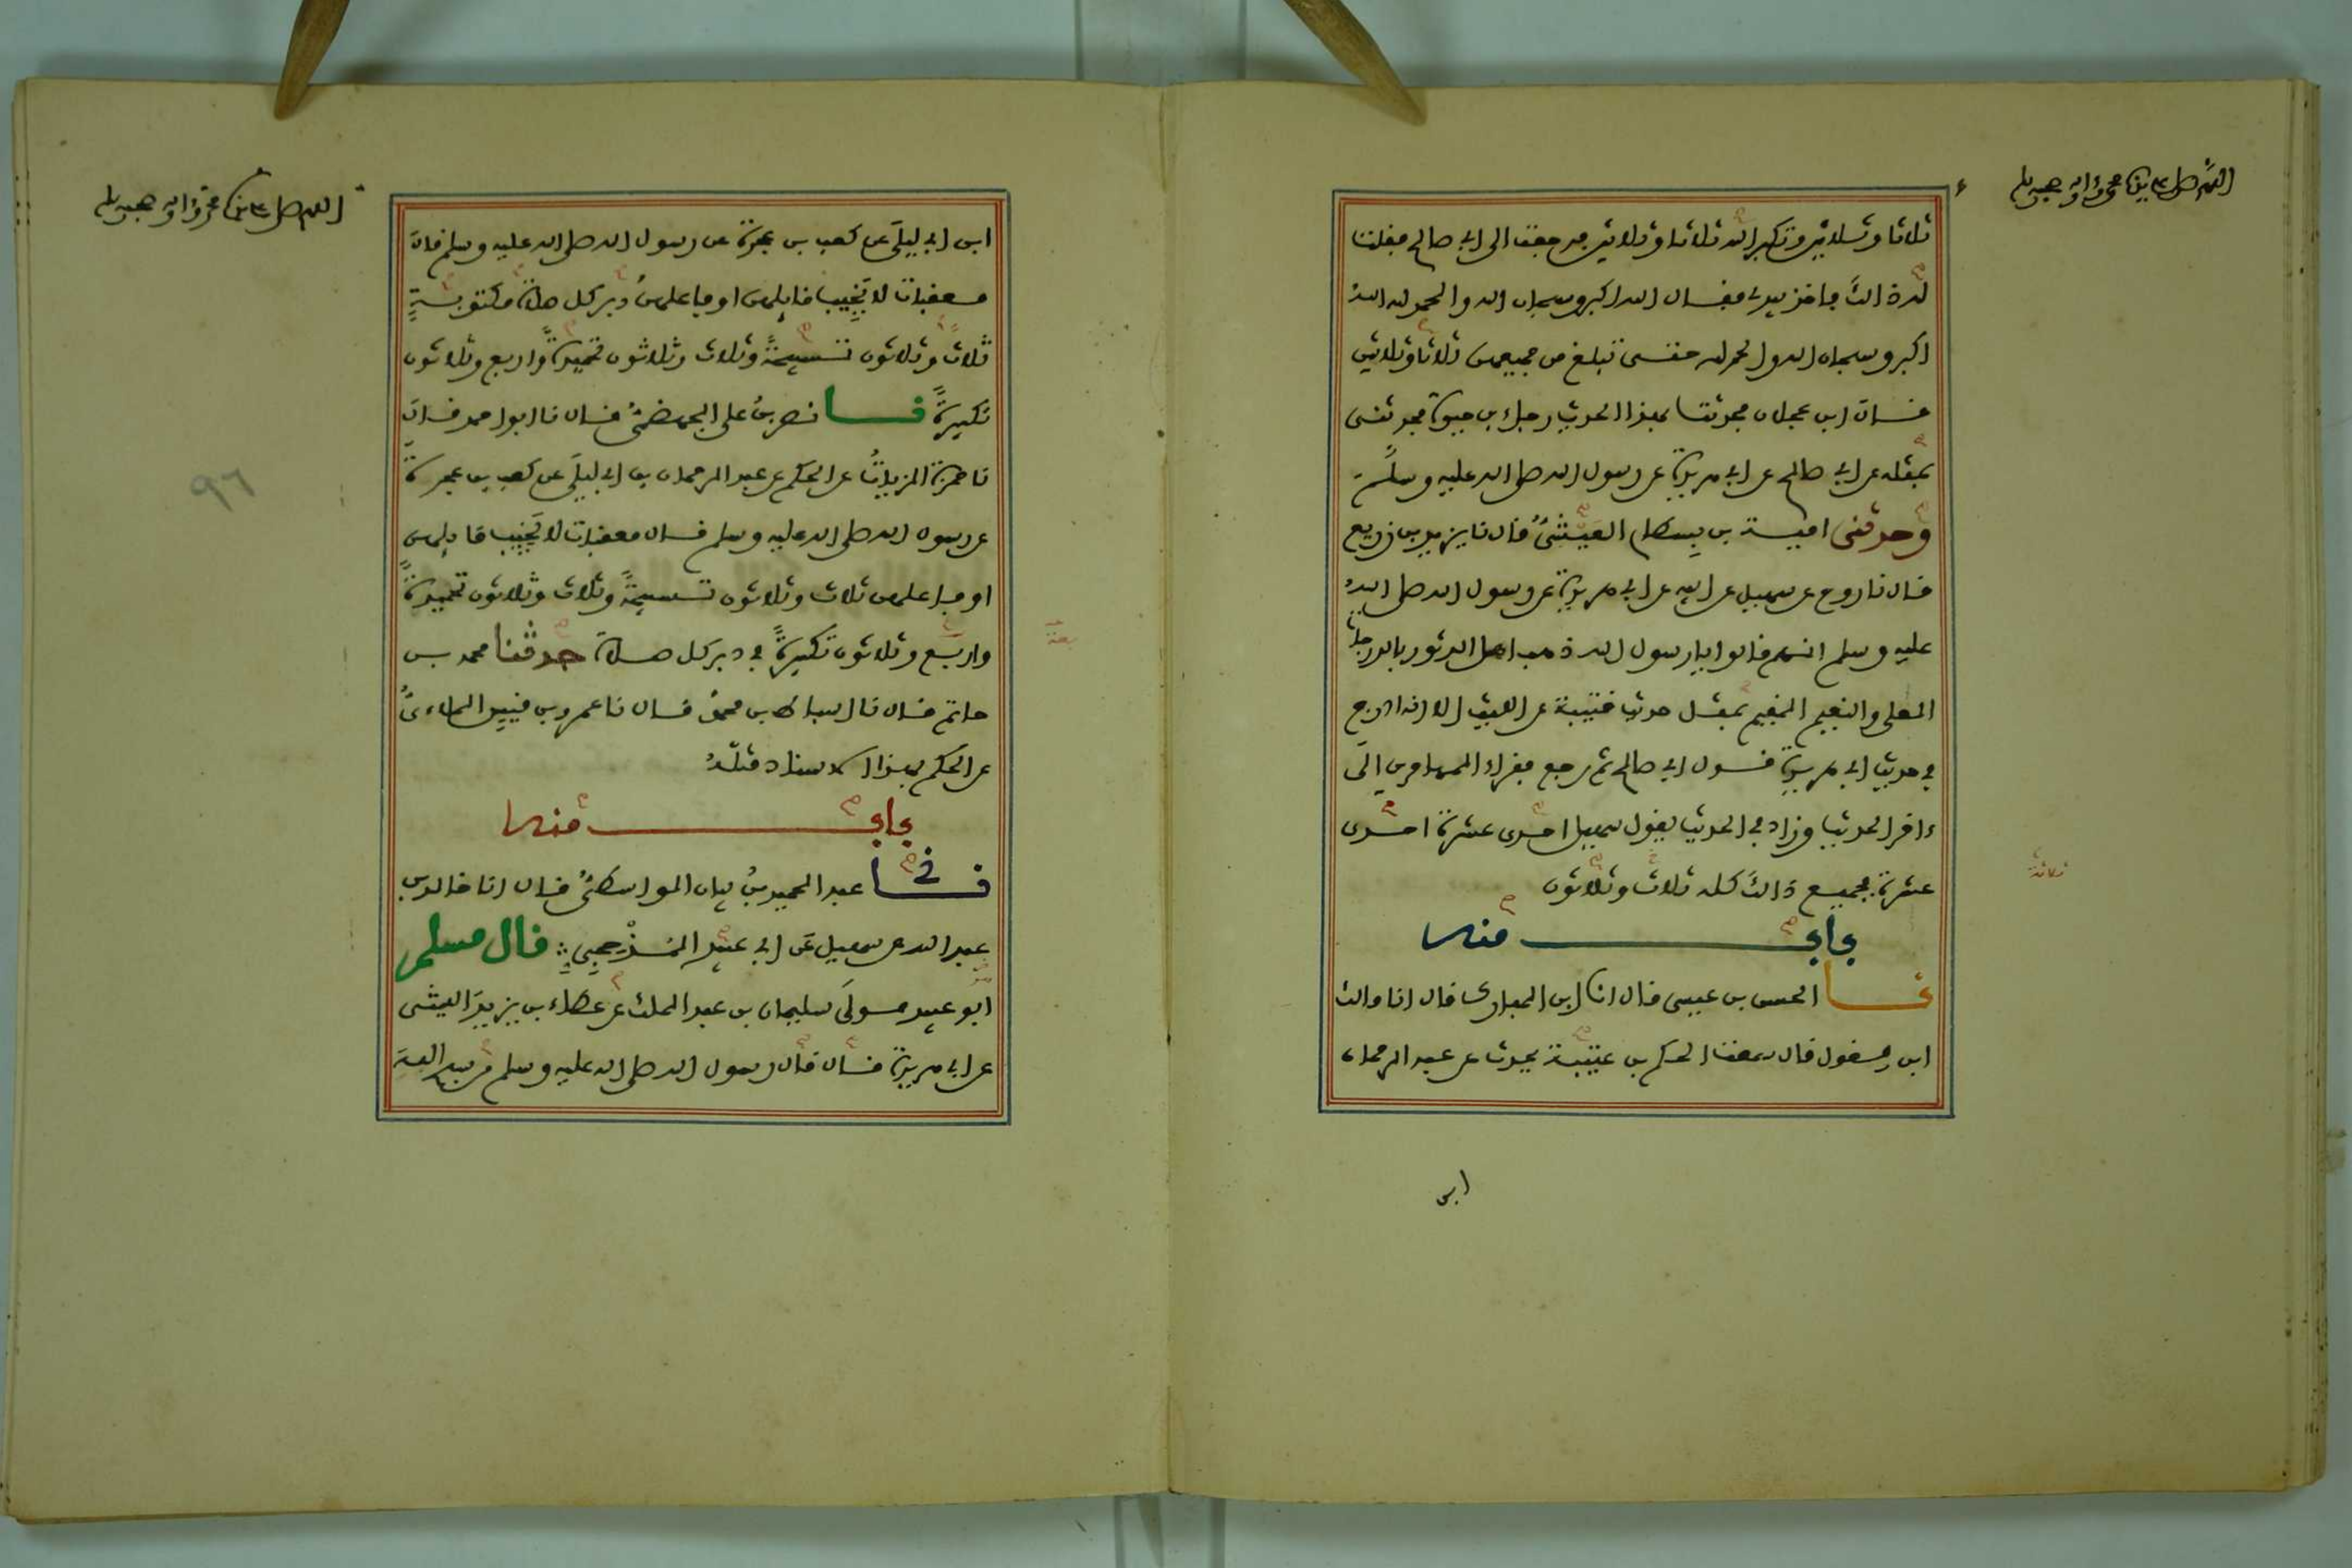 اللهم صل على سيدنا محمد وءاله وصحبه وسلم
ثلاثا وثلاثين وتكبر الله ثلاثا وثلاثين فرجعت الى ابي صالح فقلت
له ذالك فاخذ بيدي فقال الله اكبر وسبحان الله والحمد لله الله
اكبر وسبحان الله والحمد لله حتى تبلغ من جميعهن ثلاثا وثلاثين
قال ابن عجلان فحدثت بهذا الحديث رجاء بن حيوة فحدثني
بمثله عن ابي صالح عن ابي هريرة عن رسول الله صلى الله عليه وسلم
وحدثني امية بن بسطام العيشي قال نا يزيد بن زريع
قال نا روح عن سهيل عن ابيه عن ابي هريرة عن رسول الله صلى الله
عليه وسلم انهم قالوا يا رسول الله ذهب اهل الدثور بالدرجات
العلى والنعيم المقيم بمثل حديث قتيبة عن الليث الا انه ادرج
في حديث ابي هريرة قول ابي صالح ثم رجع فقراء المهاجرين الى
ءاخر الحديث وزاد في الحديث يقول سهيل احدى عشرة احدى
عشرة فجميع ذالك كله ثلاث وثلاثون
ثلاثة
باب منه
نا الحسن بن عيسى قال انا ابن المبارك قال انا مالك
ابن مغول قال سمعت الحكم بن عتيبة يحدث عن عبد الرحمان
ابن
اللهم صل على سيدنا محمد وءاله وصحبه وسلم
ابن ابي ليلى عن كعب بن عجرة عن رسول الله صلى الله عليه وسلم قال
معقبات لا يخيب قايلهن او فاعلهن دبر كل صلاة مكتوبة
ثلاث وثلاثون تسبيحة وثلاث وثلاثون تحميدة واربع وثلاثون
تكبيرة نا نصر بن علي الجهضمي قال نا ابو احمد قال
نا حمزة الزيات عن الحكم عن عبد الرحمان بن ابي ليلى عن كعب بن عجرة
عن رسول الله صلى الله عليه وسلم قال معقبات لا يخيب قايلهن
او فاعلهن ثلاث وثلاثون تسبيحة وثلاث وثلاثون تحميدة
واربع وثلاثون تكبيرة في دبر كل صلاة حدثنا محمد بن
حاتم قال نا اسباط بن محمد قال نا عمرو بن قيس الملاءي
عن الحكم بهذا الاسناد مثله
٩٦
باب منه
نا عبد الحميد بن بيان الواسطي قال انا خالد بن
عبد الله عن سهيل عن ابي عبيد المذحجي قال مسلم
ابو عبيد مولى سليمان بن عبد الملك عن عطاء بن يزيد الليثي
عن ابي هريرة قال قال رسول الله صلى الله عليه وسلم من سبح الله